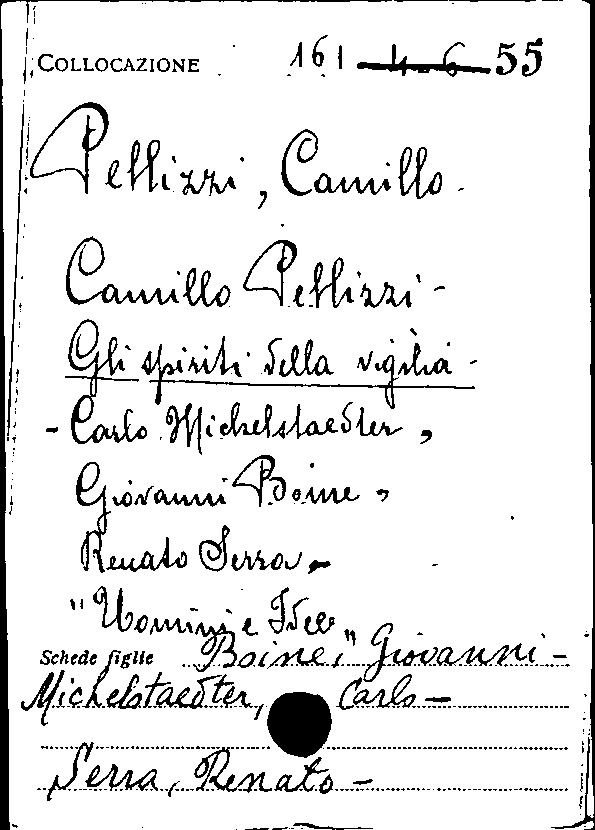 COLLOCAZIONE 161 4-6 55
Pellizzi, Camillo.
Camillo Pellizzi -
Gli spiriti della vigilia -
- Carlo Michelstaedter,
Giovanni Boine,
Renato Serra -
"Uomini e Idee"
Schede figlie Boine, Giovanni -
Michelstaedter, Carlo -
Serra, Renato -